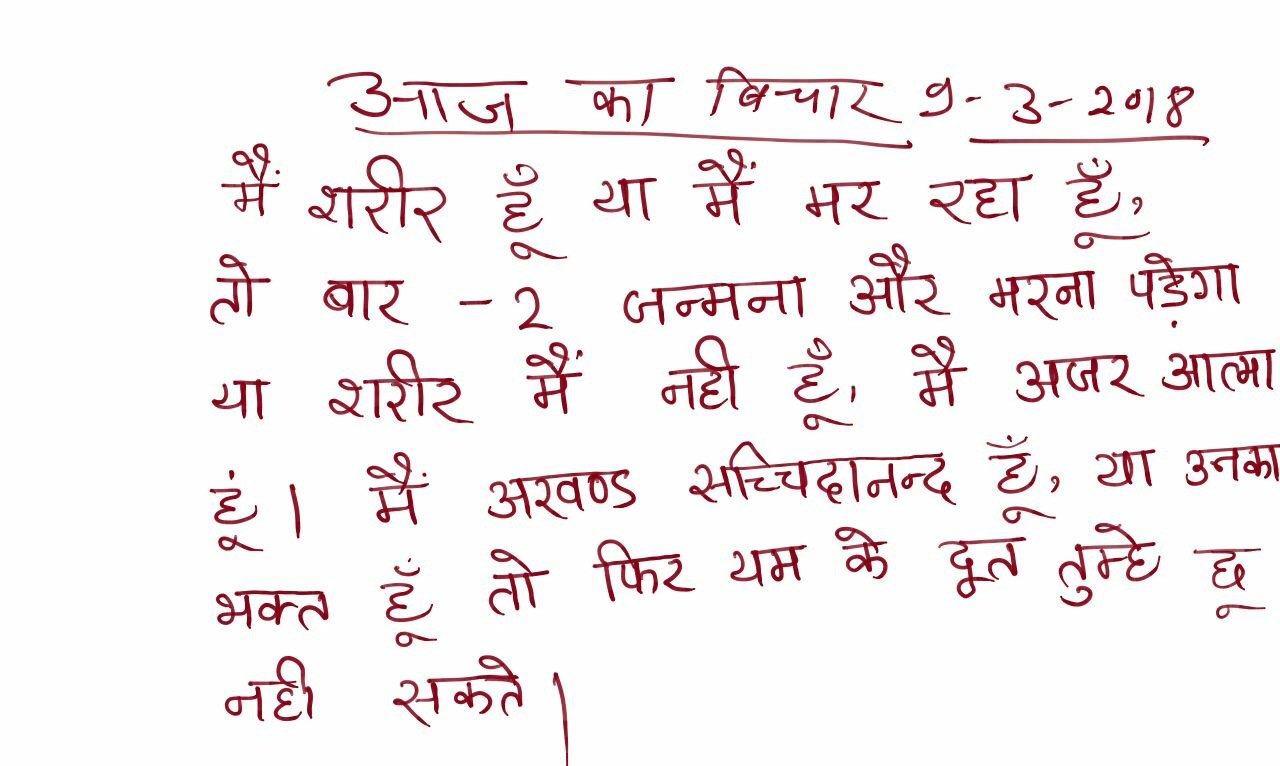 आज का विचार 9-3-2018
मैं शरीर हूँ या मैं मर रहा हूँ,
तो बार -2 जन्मना और मरना पड़ेगा
या शरीर मैं नही हूँ, मै अजर आत्मा
हूं। मैं अखण्ड सच्चिदानन्द हूँ, या उनका
भक्त हूँ तो फिर यम के दूत तुम्हे छू
नही सकते।